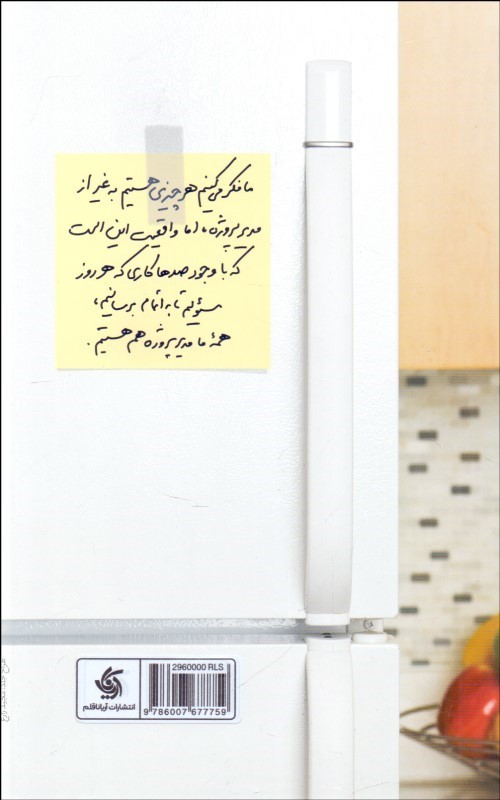 ما فکر می‌کنیم هر چیزی هستیم به غیر از
مدیر پروژه، اما واقعیت این است
که با وجود صدها کاری که هر روز
مسئولیم تا به اتمام برسانیم،
همهٔ ما مدیر پروژه هم هستیم.
2960000 RLS
انتشارات آریاناقلم
9 786007 677759